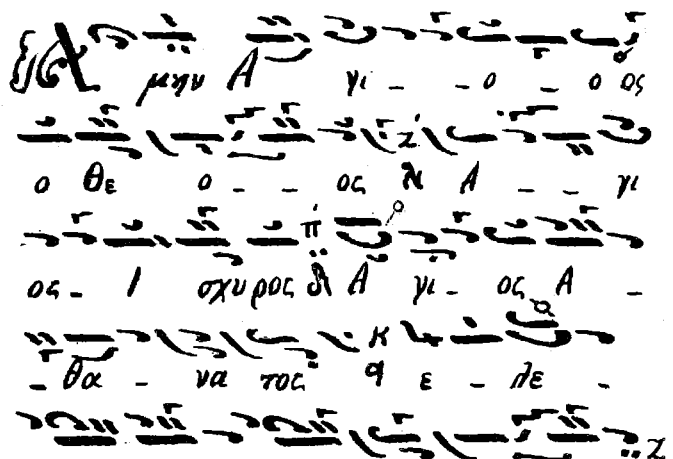 Ἀ μην Α γι _ _ ο _ ο ος
ο Θε ο _ _ ος Α _ _ γι
ος _ Ι σχυρος Α γι _ ος Α _
_ θα _ να τος ε _ λε _